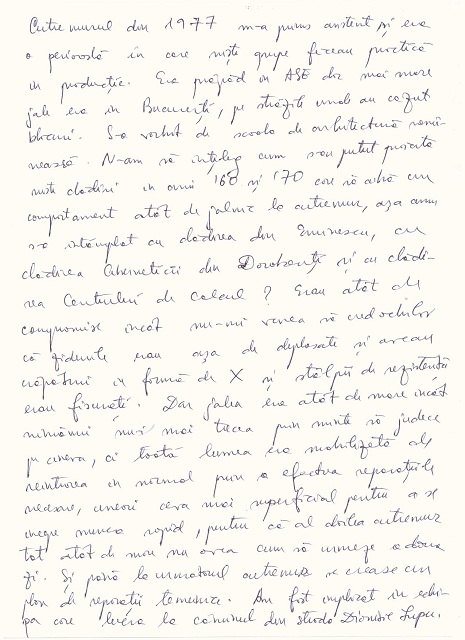 Cutremurul din 1977 m-a prins asistent și era
o perioadă în care niște grupe făceau practică
în producție. Era prăpăd în ASE dar mai mare
jale era în București, pe străzile unde au căzut
blocuri. S-a vorbit de școala de arhitectură româ-
nească. N-am să înțeleg cum s-au putut proiecta
niște clădiri în anii '60 și '70 care să aibă un
comportament atât de jalnic la cutremur, așa cum
s-a întâmplat cu clădirea din Eminescu, cu
clădirea Ciberneticii din Dorobanți și cu clădi-
rea Centrului de Calcul? Erau atât de
compromise încât nu-mi venea să cred ochilor
că zidurile erau așa de deplasate și aveau
crăpături în formă de X și stâlpii de rezistență
erau fisurați. Dar jalea era atât de mare încât
nimănui nu-i mai trecea prin minte să judece
pe cineva, ci toată lumea era mobilizată de
reintrarea în normal prin a efectua reparațiile
necesare, uneori ceva mai superficial pentru a se
merge mai rapid, pentru că al doilea cutremur
tot atât de mare nu avea cum să urmeze a doua
zi. Și până la următorul cutremur se crease un
plan de reparații temeinice. Am fost implicat în echi-
pa care lucra la căminul din strada Dionisie Lupu.